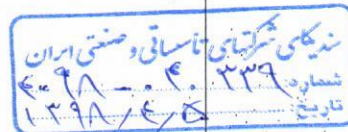 سندیکای شرکتهای تأسیساتی و صنعتی ایران
شماره: ۴۰۹۸-۰۴۰۳۳۹
تاریخ: ۱۳۹۸/۴/۵